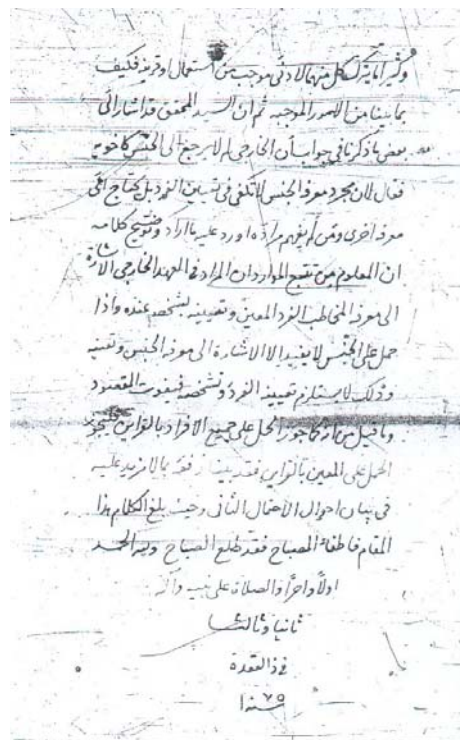 وكثيرا ما يترك كل منهما لأدنى موجب من استعمال او قرينة فكيف
بما بينا من الامور الموجبه ثم ان السيد المحقق قد اشار الى
بعض ما ذكرنا في جواب أن الخارجي لم لا يرجع الى الجنس كاخويه
فقال لان مجرد معرفة الجنس لا تكفي في تعيين الفرد بل يحتاج الى
معرفة اخرى ومن لم يفهم مراده اورد عليه ما اراد وتوضيح كلامه
ان المعلوم من تتبع الموارد ان المراد في العهد الخارجي الاشارة
الى معرفة المخاطب الفرد المعين وتعيينه بشخصه عنده واذا
حمل على الجنس لا يفيد الا الاشارة الى معرفة الجنس وتعينه
وذلك لا يستلزم تعيينه الفرد وتشخصه فيفوت المقصود
وما قيل من انه كما جوز الحمل على جميع الافراد بالقراين فليجوز
الحمل على المعين بالقراين فقد بينا بما لا مزيد عليه
في بيان احوال الاحتمال الثاني وحيث بلغ الكلام هذا
المقام فاطفاء المصباح فقد طلع الصباح ولله الحمد
اولاً واخراً والصلاة على نبيه وآله
ثانيا وثالثا
في ذالقعدة
سنة ١٠٧٥